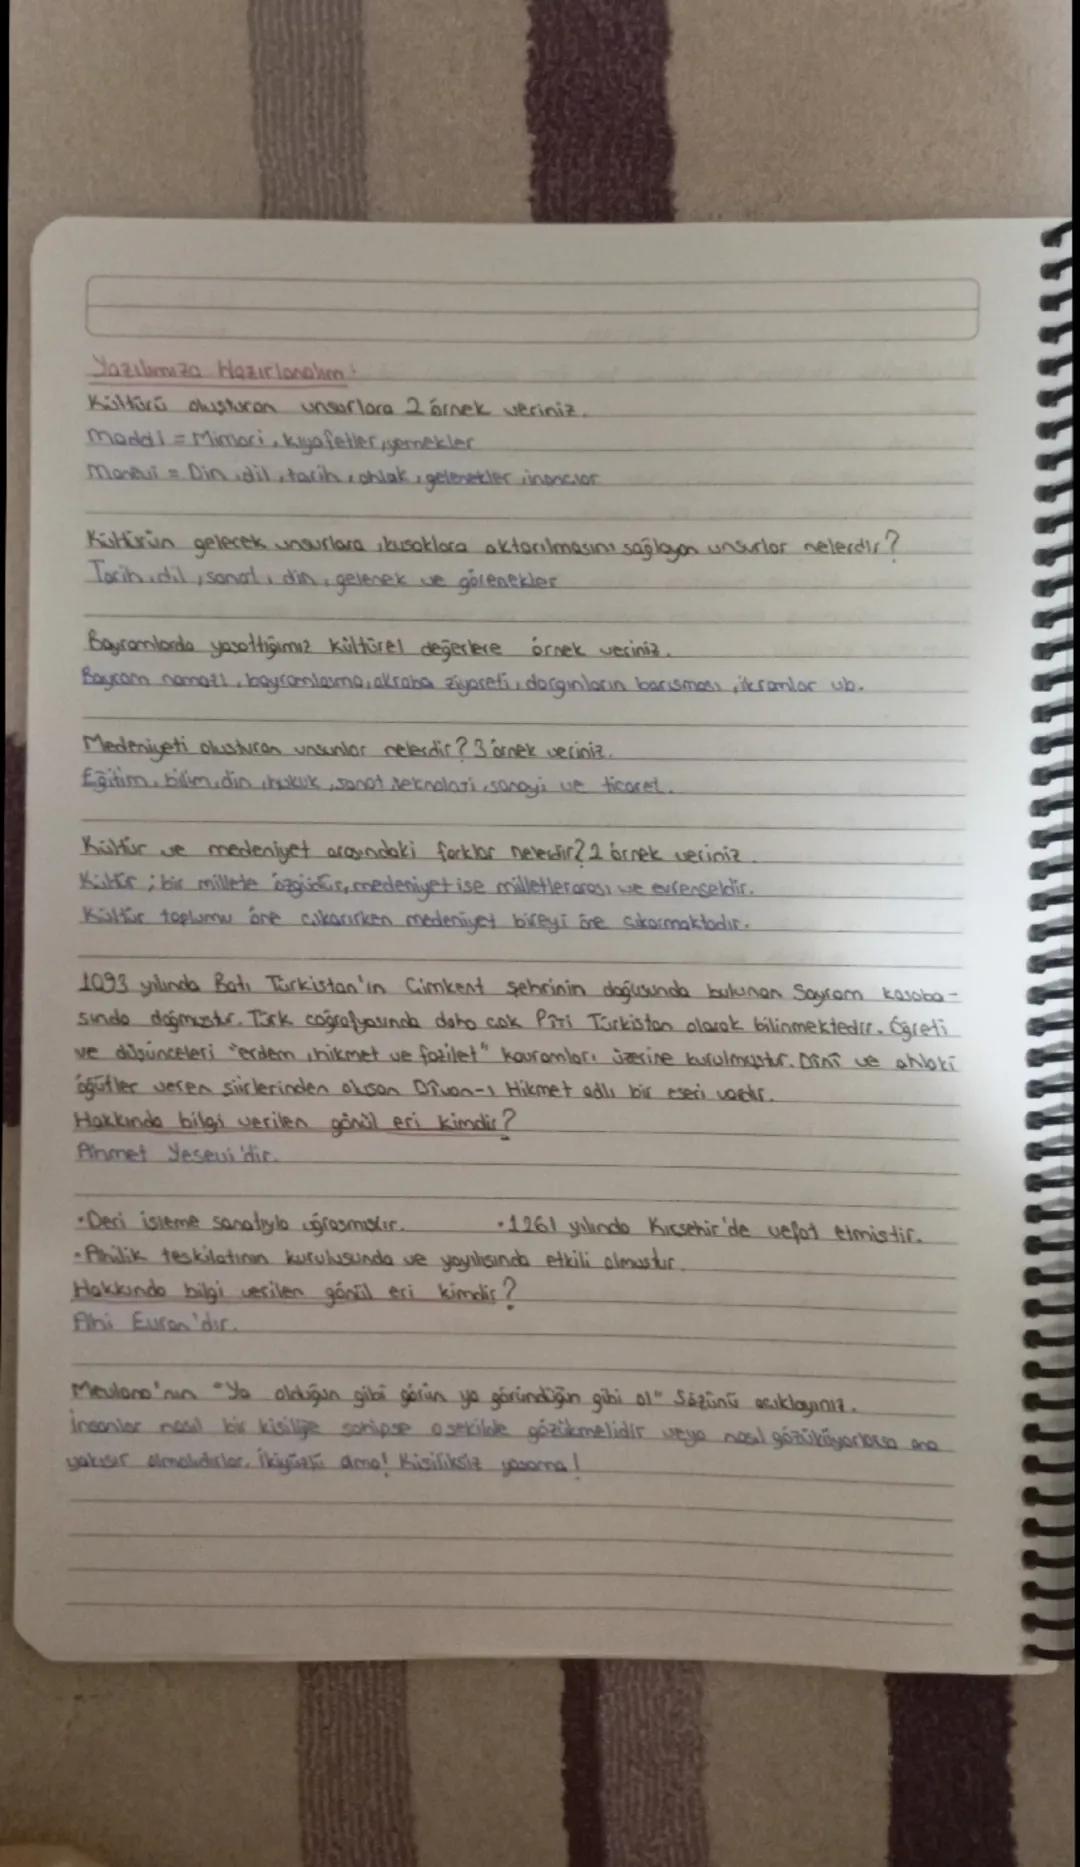 Yazılımıza Hazırlanalım:
Kültürü oluşturan unsurlara 2 örnek veriniz.
Maddi = Mimari, kıyafetler, yemekler
Manevi = Din, dil, tarih, ahlak, gelenekler, inançlar
Kültürün gelecek unsurlara, kuşaklara aktarılmasını sağlayan unsurlar nelerdir?
Tarih, dil, sanat, din, gelenek ve görenekler
Bayramlarda yaşattığımız kültürel değerlere örnek veriniz.
Bayram namazı, bayramlaşma, akraba ziyareti, dargınların barışması, ikramlar vb.
Medeniyeti oluşturan unsurlar nelerdir? 3 örnek veriniz.
Eğitim, bilim, din, hukuk, sanat, teknoloji, sanayi ve ticaret.
Kültür ve medeniyet arasındaki farklar nelerdir? 2 örnek veriniz.
Kültür; bir millete özgüdür, medeniyet ise milletlerarası ve evrenseldir.
Kültür toplumu öne çıkarırken medeniyet bireyi öne çıkarmaktadır.
1093 yılında Batı Türkistan'ın Çimkent şehrinin doğusunda bulunan Sayram kasaba-
sında doğmuştur. Türk coğrafyasında daha çok Pîri Türkistan olarak bilinmektedir. Öğreti
ve düşünceleri "erdem, hikmet ve fazilet" kavramları üzerine kurulmuştur. Dînî ve ahlaki
öğütler veren şiirlerinden oluşan Dîvan-ı Hikmet adlı bir eseri vardır.
Hakkında bilgi verilen gönül eri kimdir?
Ahmet Yesevi'dir.
•Deri işleme sanatıyla uğraşmıştır. •1261 yılında Kırşehir'de vefat etmiştir.
•Ahilik teşkilatının kuruluşunda ve yayılışında etkili olmuştur.
Hakkında bilgi verilen gönül eri kimdir?
Ahi Evran'dır.
Mevlana'nın "Ya olduğun gibi görün ya göründüğün gibi ol" Sözünü açıklayınız.
İnsanlar nasıl bir kişiliğe sahipse o şekilde gözükmelidir veya nasıl gözüküyorlarsa ona
yakışır olmalıdırlar. İkiyüzlü olma! Kişiliksiz yaşama!